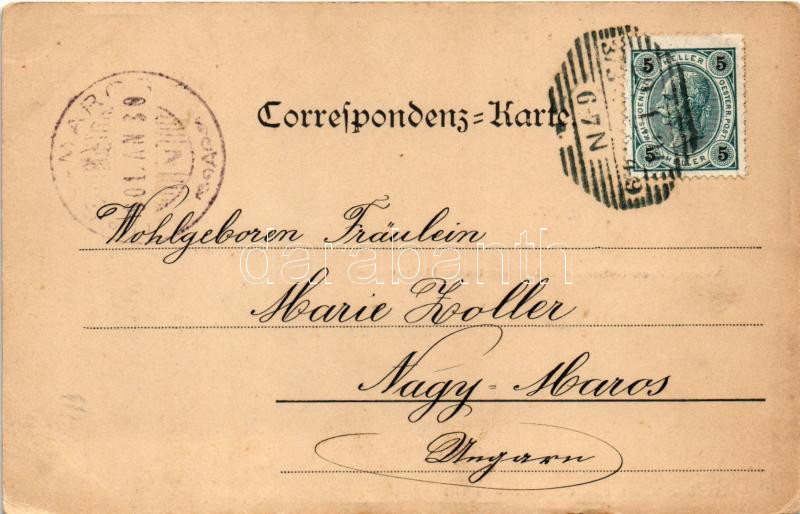 Correſpondenz=Karte
5 HELLER 5
5 HELLER 5
OESTERR. POST.
6-7 N
MAROS
01 JAN 30
Wohlgeboren Fräulein
darabanth
Marie Zoller
Nagy=Maros
Ungarn